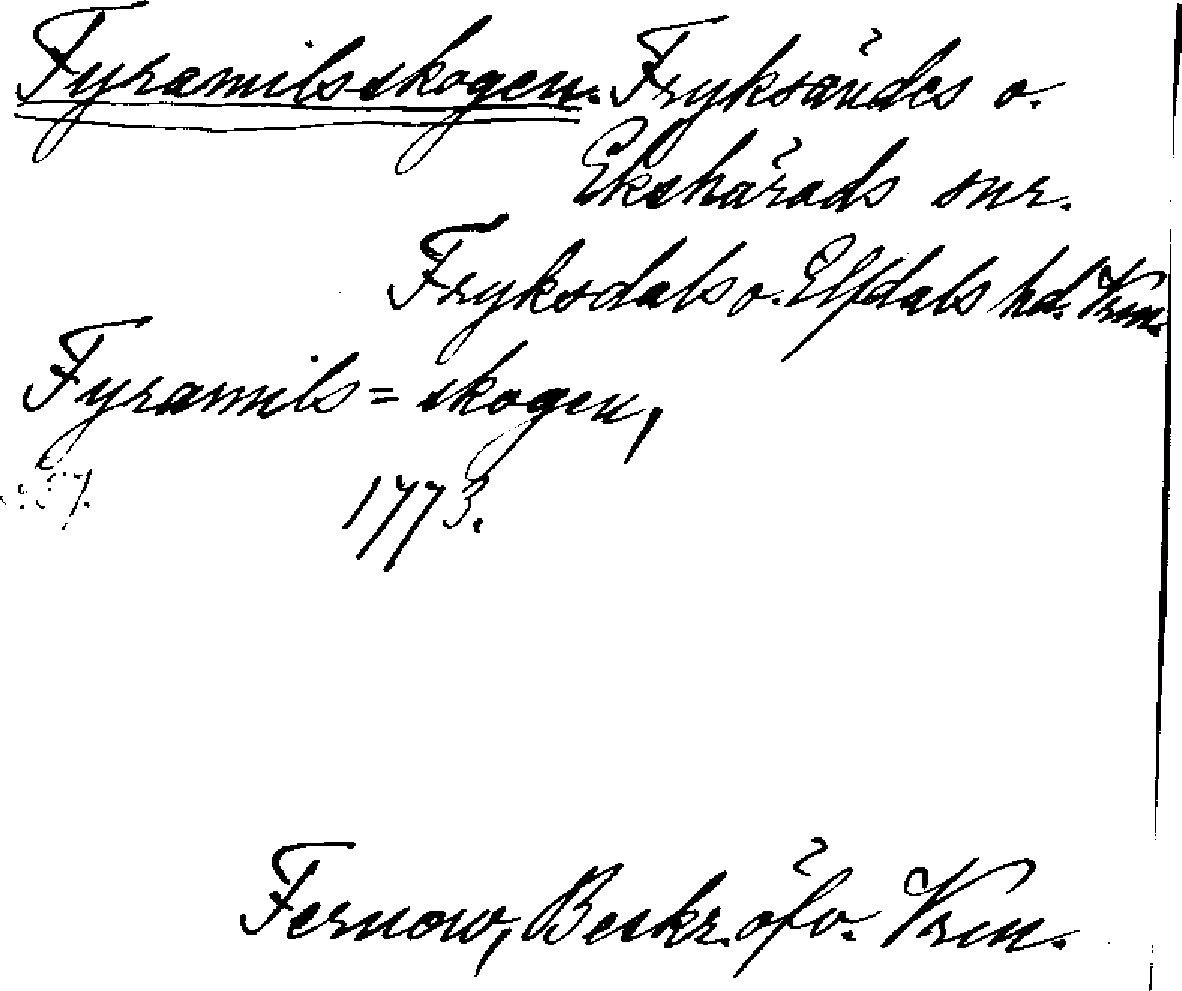 Fyramilsskogen. Fryksändes o.
Ekshärads snr.
Fryksdals o. Elfdals hd. Vrm.
Fyramils=skogen,
1773.
Fernow, Beskr. öfv. Vrm.